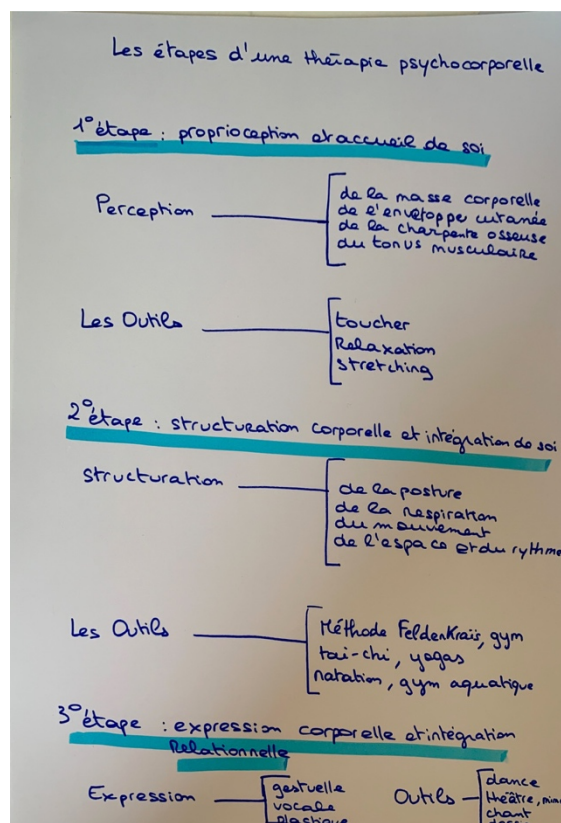 Les étapes d'une thérapie psychocorporelle
1° étape : proprioception et accueil de soi
Perception
de la masse corporelle
de l'enveloppe cutanée
de la charpente osseuse
du tonus musculaire
Les Outils
toucher
Relaxation
stretching
2° étape : structuration corporelle et intégration de soi
structuration
de la posture
de la respiration
du mouvement
de l'espace et du rythme
Les Outils
Méthode FeldenKraïs, gym
tai-chi, yogas
natation, gym aquatique
3° étape : expression corporelle et intégration
Relationnelle
Expression
gestuelle
vocale
plastique
Outils
dance
théâtre,
chant